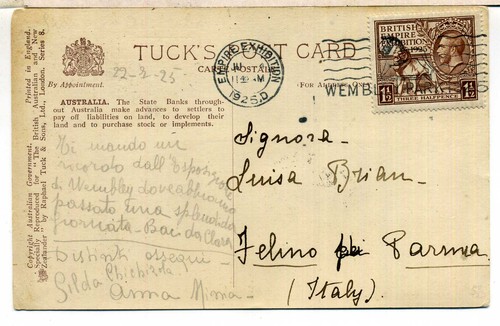 Printed in England.
Copyright Australian Government.
Specially Reproduced for "The British Australian and New
Zealander" by Raphael Tuck & Sons, Ltd., London. Series 8.
By Appointment.
TUCK'S POST CARD
CARTE POSTALE
22-2-25
AUSTRALIA. The State Banks through-
out Australia make advances to settlers to
pay off liabilities on land, to develop their
land and to purchase stock or implements.
EMPIRE EXHIBITION
1925.D
WEMBLEY PARK
BRITISH
EMPIRE
EXHIBITION
1925
1½
THREE HALFPENCE
1½
Ti mando un
ricordo dall'Esposizione
di Wembley dove abbiamo
passato una splendida
giornata - Baci da Clara
Distinti ossequi
Gilda Chichizola
Anna Mima -
Signora
Luisa Brian -
Felino Parma
(Italy).